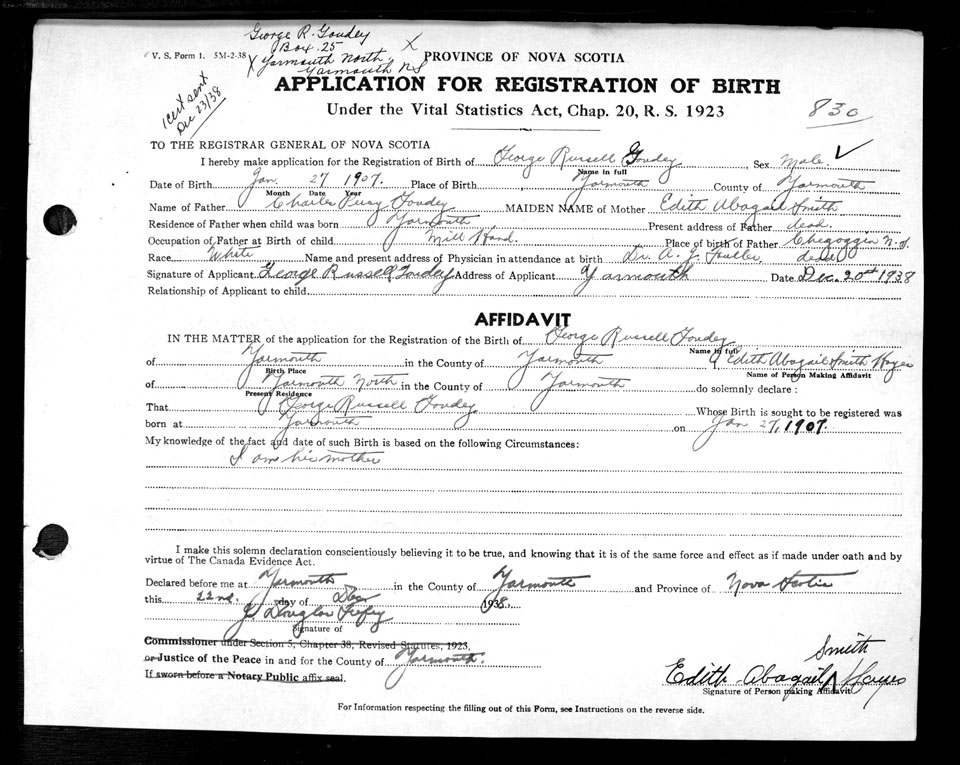 George R. Goudey
Box 25
V. S. Form 1. 5M-2-38 X Yarmouth North, X PROVINCE OF NOVA SCOTIA
Yarmouth NS
APPLICATION FOR REGISTRATION OF BIRTH
1 cert sent Dec 23/38
Under the Vital Statistics Act, Chap. 20, R. S. 1923 830
TO THE REGISTRAR GENERAL OF NOVA SCOTIA
I hereby make application for the Registration of Birth of George Russell Goudey, Sex Male. ✓
Name in full
Date of Birth Jan. 27 1907. Place of Birth Yarmouth County of Yarmouth
Month Date Year
Name of Father Charles Percy Goudey MAIDEN NAME of Mother Edith Abagail Smith
Residence of Father when child was born Yarmouth Present address of Father dead.
Occupation of Father at Birth of child Mill Hand. Place of birth of Father Chegoggin N.S.
Race White Name and present address of Physician in attendance at birth Dr. A. J. Fuller, dead
Signature of Applicant George Russell Goudey Address of Applicant Yarmouth Date Dec. 20th 1938
Relationship of Applicant to child
AFFIDAVIT
IN THE MATTER of the application for the Registration of the Birth of George Russell Goudey
Name in full
of Yarmouth in the County of Yarmouth I, Edith Abagail Smith Hayes
Birth Place Name of Person Making Affidavit
of Yarmouth North in the County of Yarmouth do solemnly declare :
Present Residence
That George Russell Goudey Whose Birth is sought to be registered was
born at Yarmouth on Jan 27, 1907.
My knowledge of the fact and date of such Birth is based on the following Circumstances:
I am his mother
I make this solemn declaration conscientiously believing it to be true, and knowing that it is of the same force and effect as if made under oath and by
virtue of The Canada Evidence Act.
Declared before me at Yarmouth in the County of Yarmouth and Province of Nova Scotia
this 22nd. day of Dec 1938.
Douglas
Signature of
Commissioner under Section 5, Chapter 38, Revised Statutes, 1923,
or Justice of the Peace in and for the County of Yarmouth.
If sworn before a Notary Public affix seal.
Smith
Edith Abagail Hayes
Signature of Person making Affidavit
For Information respecting the filling out of this Form, see Instructions on the reverse side.